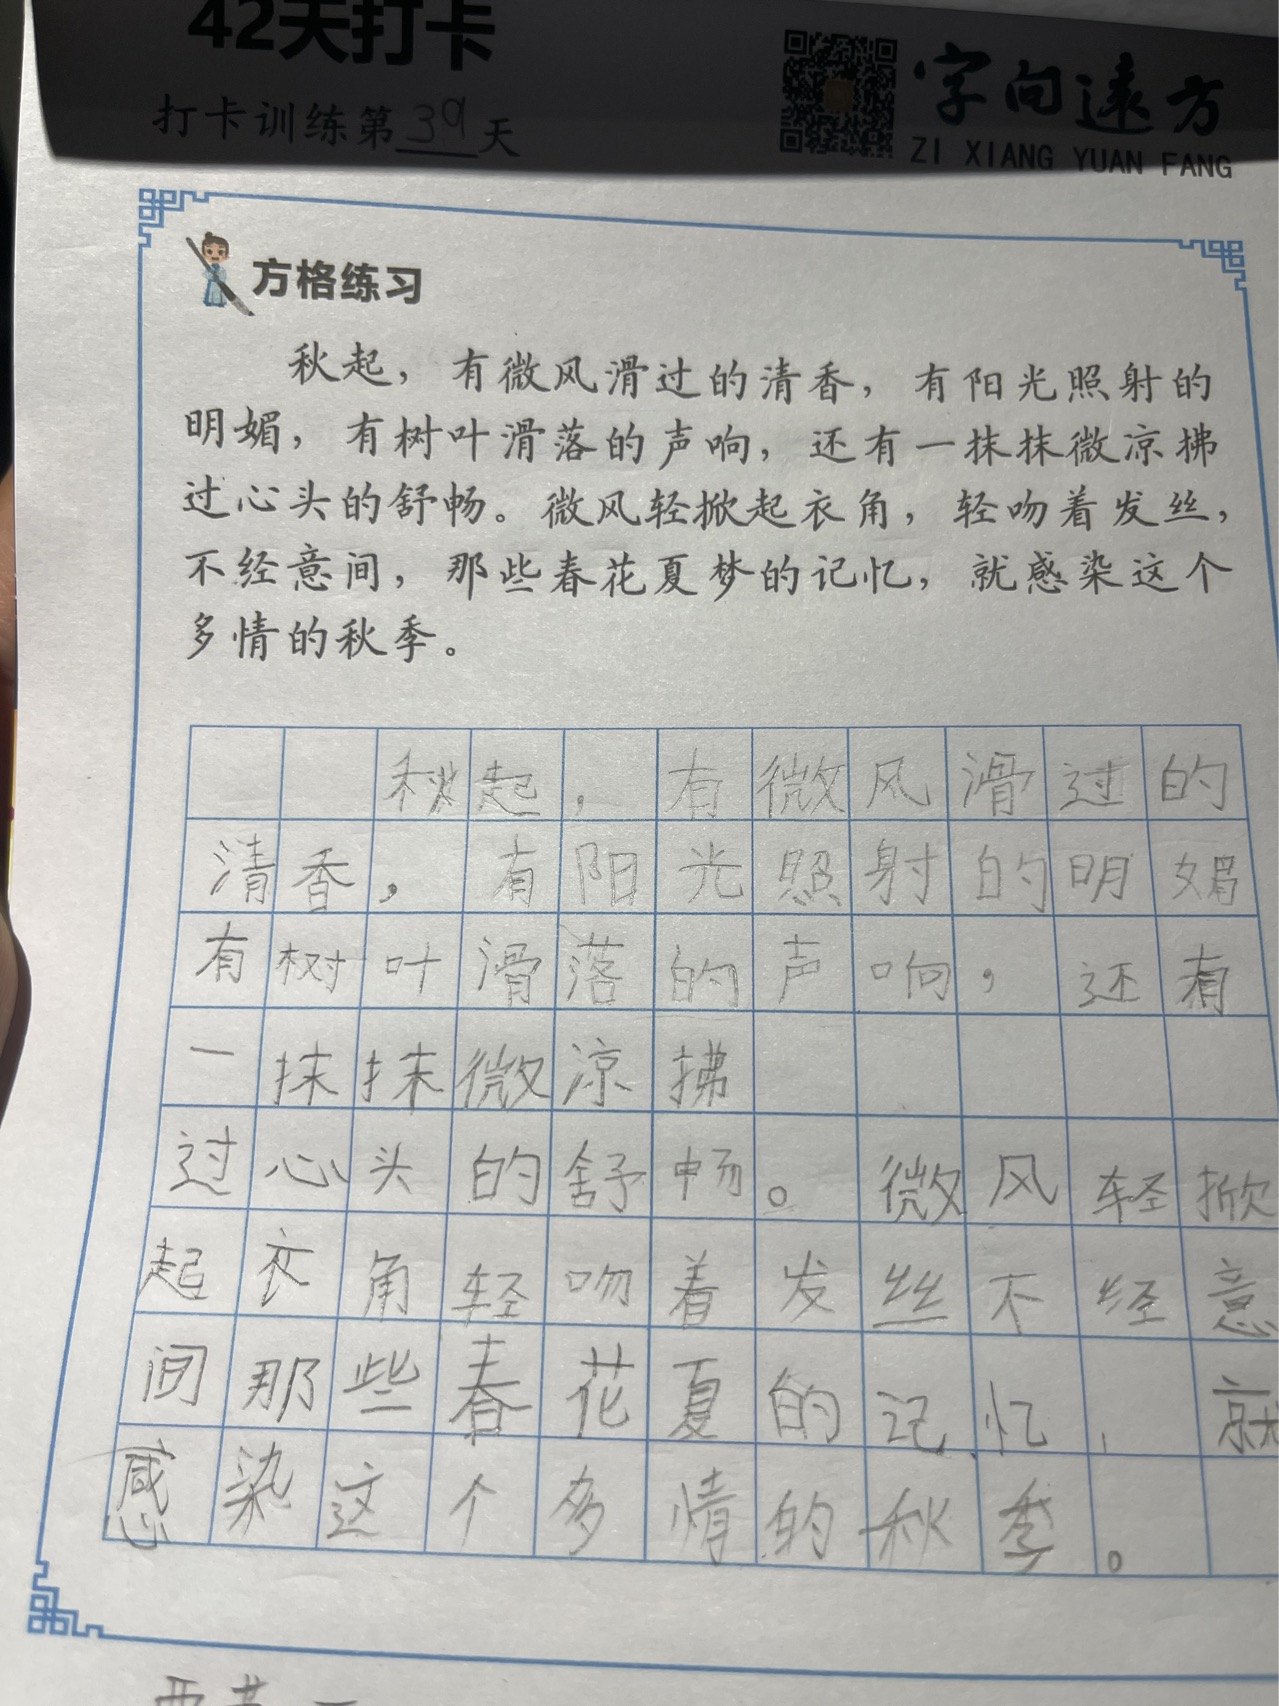 42天打卡
打卡训练第39天
字向远方
ZI XIANG YUAN FANG
方格练习
秋起，有微风滑过的清香，有阳光照射的
明媚，有树叶滑落的声响，还有一抹抹微凉拂
过心头的舒畅。微风轻掀起衣角，轻吻着发丝，
不经意间，那些春花夏梦的记忆，就感染这个
多情的秋季。
秋起，有微风滑过的
清香，有阳光照射的明媚
有树叶滑落的声响，还有
一抹抹微凉拂
过心头的舒畅。微风轻掀
起衣角轻吻着发丝不经意
间那些春花夏的记忆，就
感染这个多情的秋季。